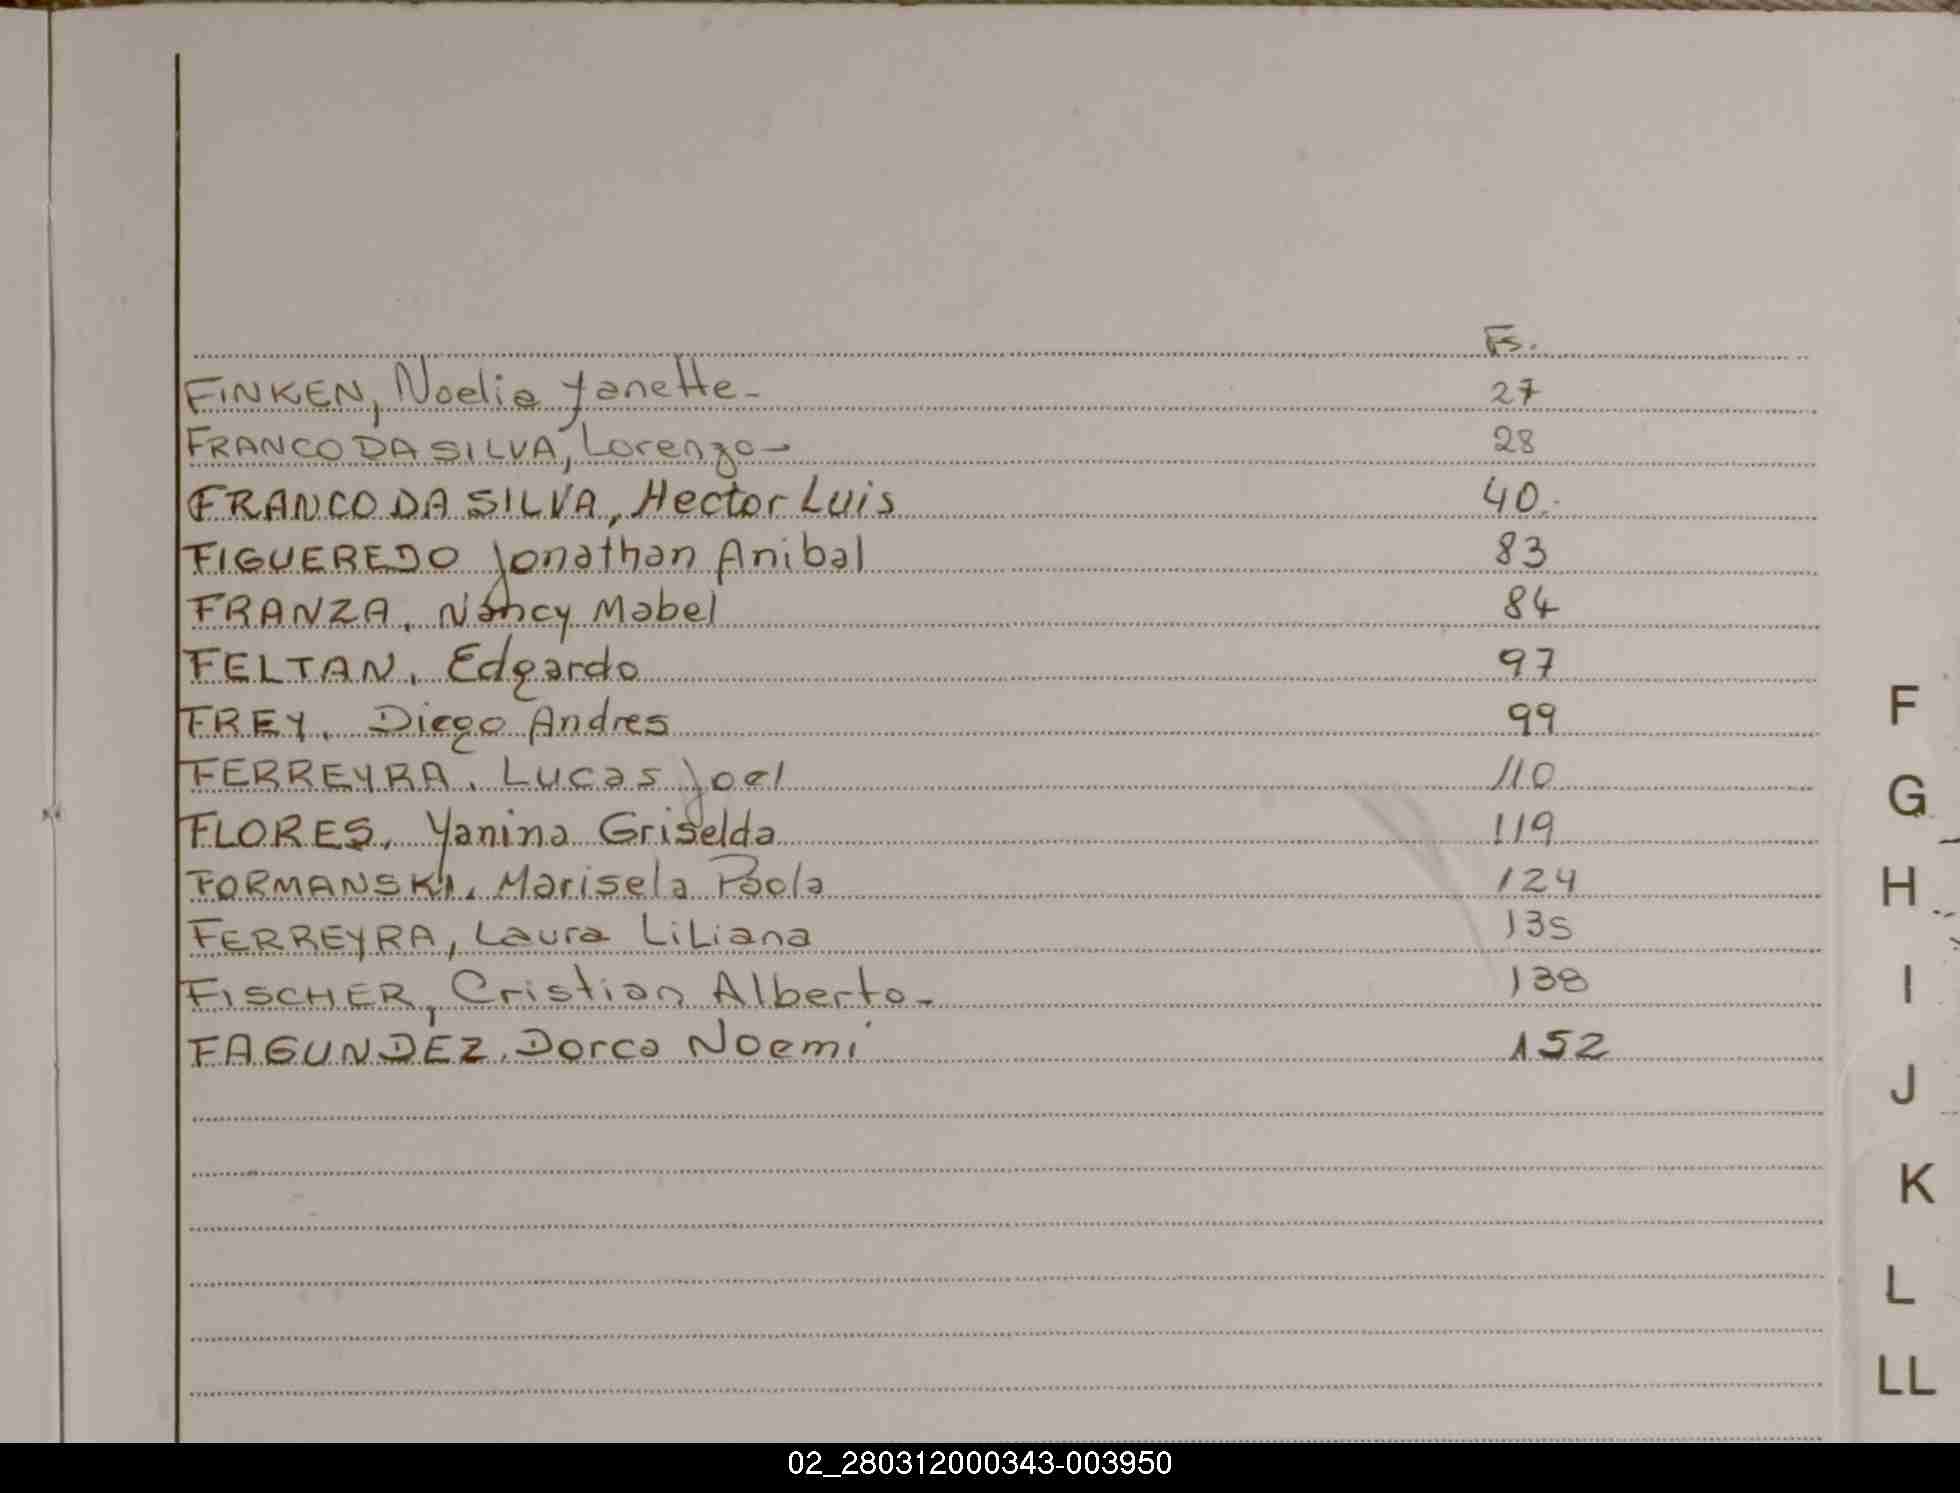 Fs.
FINKEN, Noelia Yanette- 27
FRANCO DA SILVA, Lorenzo- 28
FRANCO DA SILVA, Hector Luis 40.-
FIGUEREDO Jonathan Anibal 83
FRANZA, Nancy Mabel 84
FELTAN, Edgardo 97
FREY, Diego Andres 99
FERREYRA, Lucas Joel 110
FLORES, Yanina Griselda 119
FORMANSKI, Marisela Paola 124
FERREYRA, Laura LiLiana 135
FISCHER, Cristian Alberto- 138
FAGUNDEZ, Dorca Noemi 152
F
G
H
I
J
K
L
LL
02_280312000343-003950